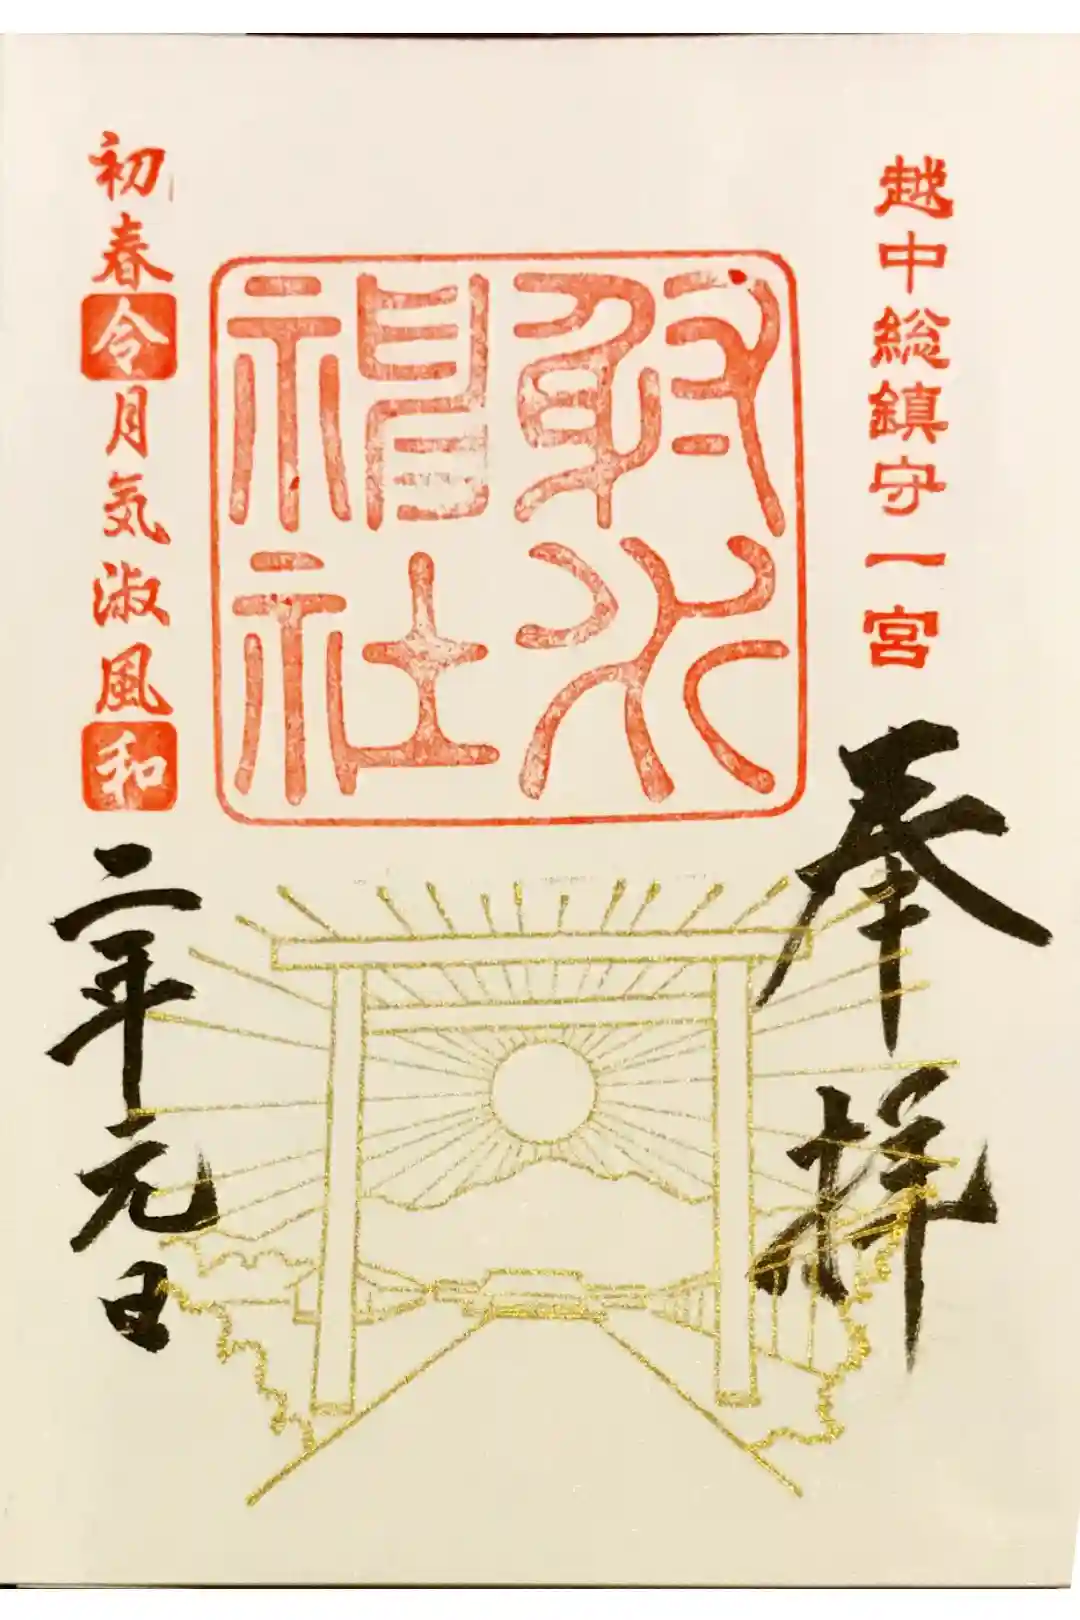 越中総鎮守一宮
奉拝
射水
神社
初春令月気淑風和
二年元日